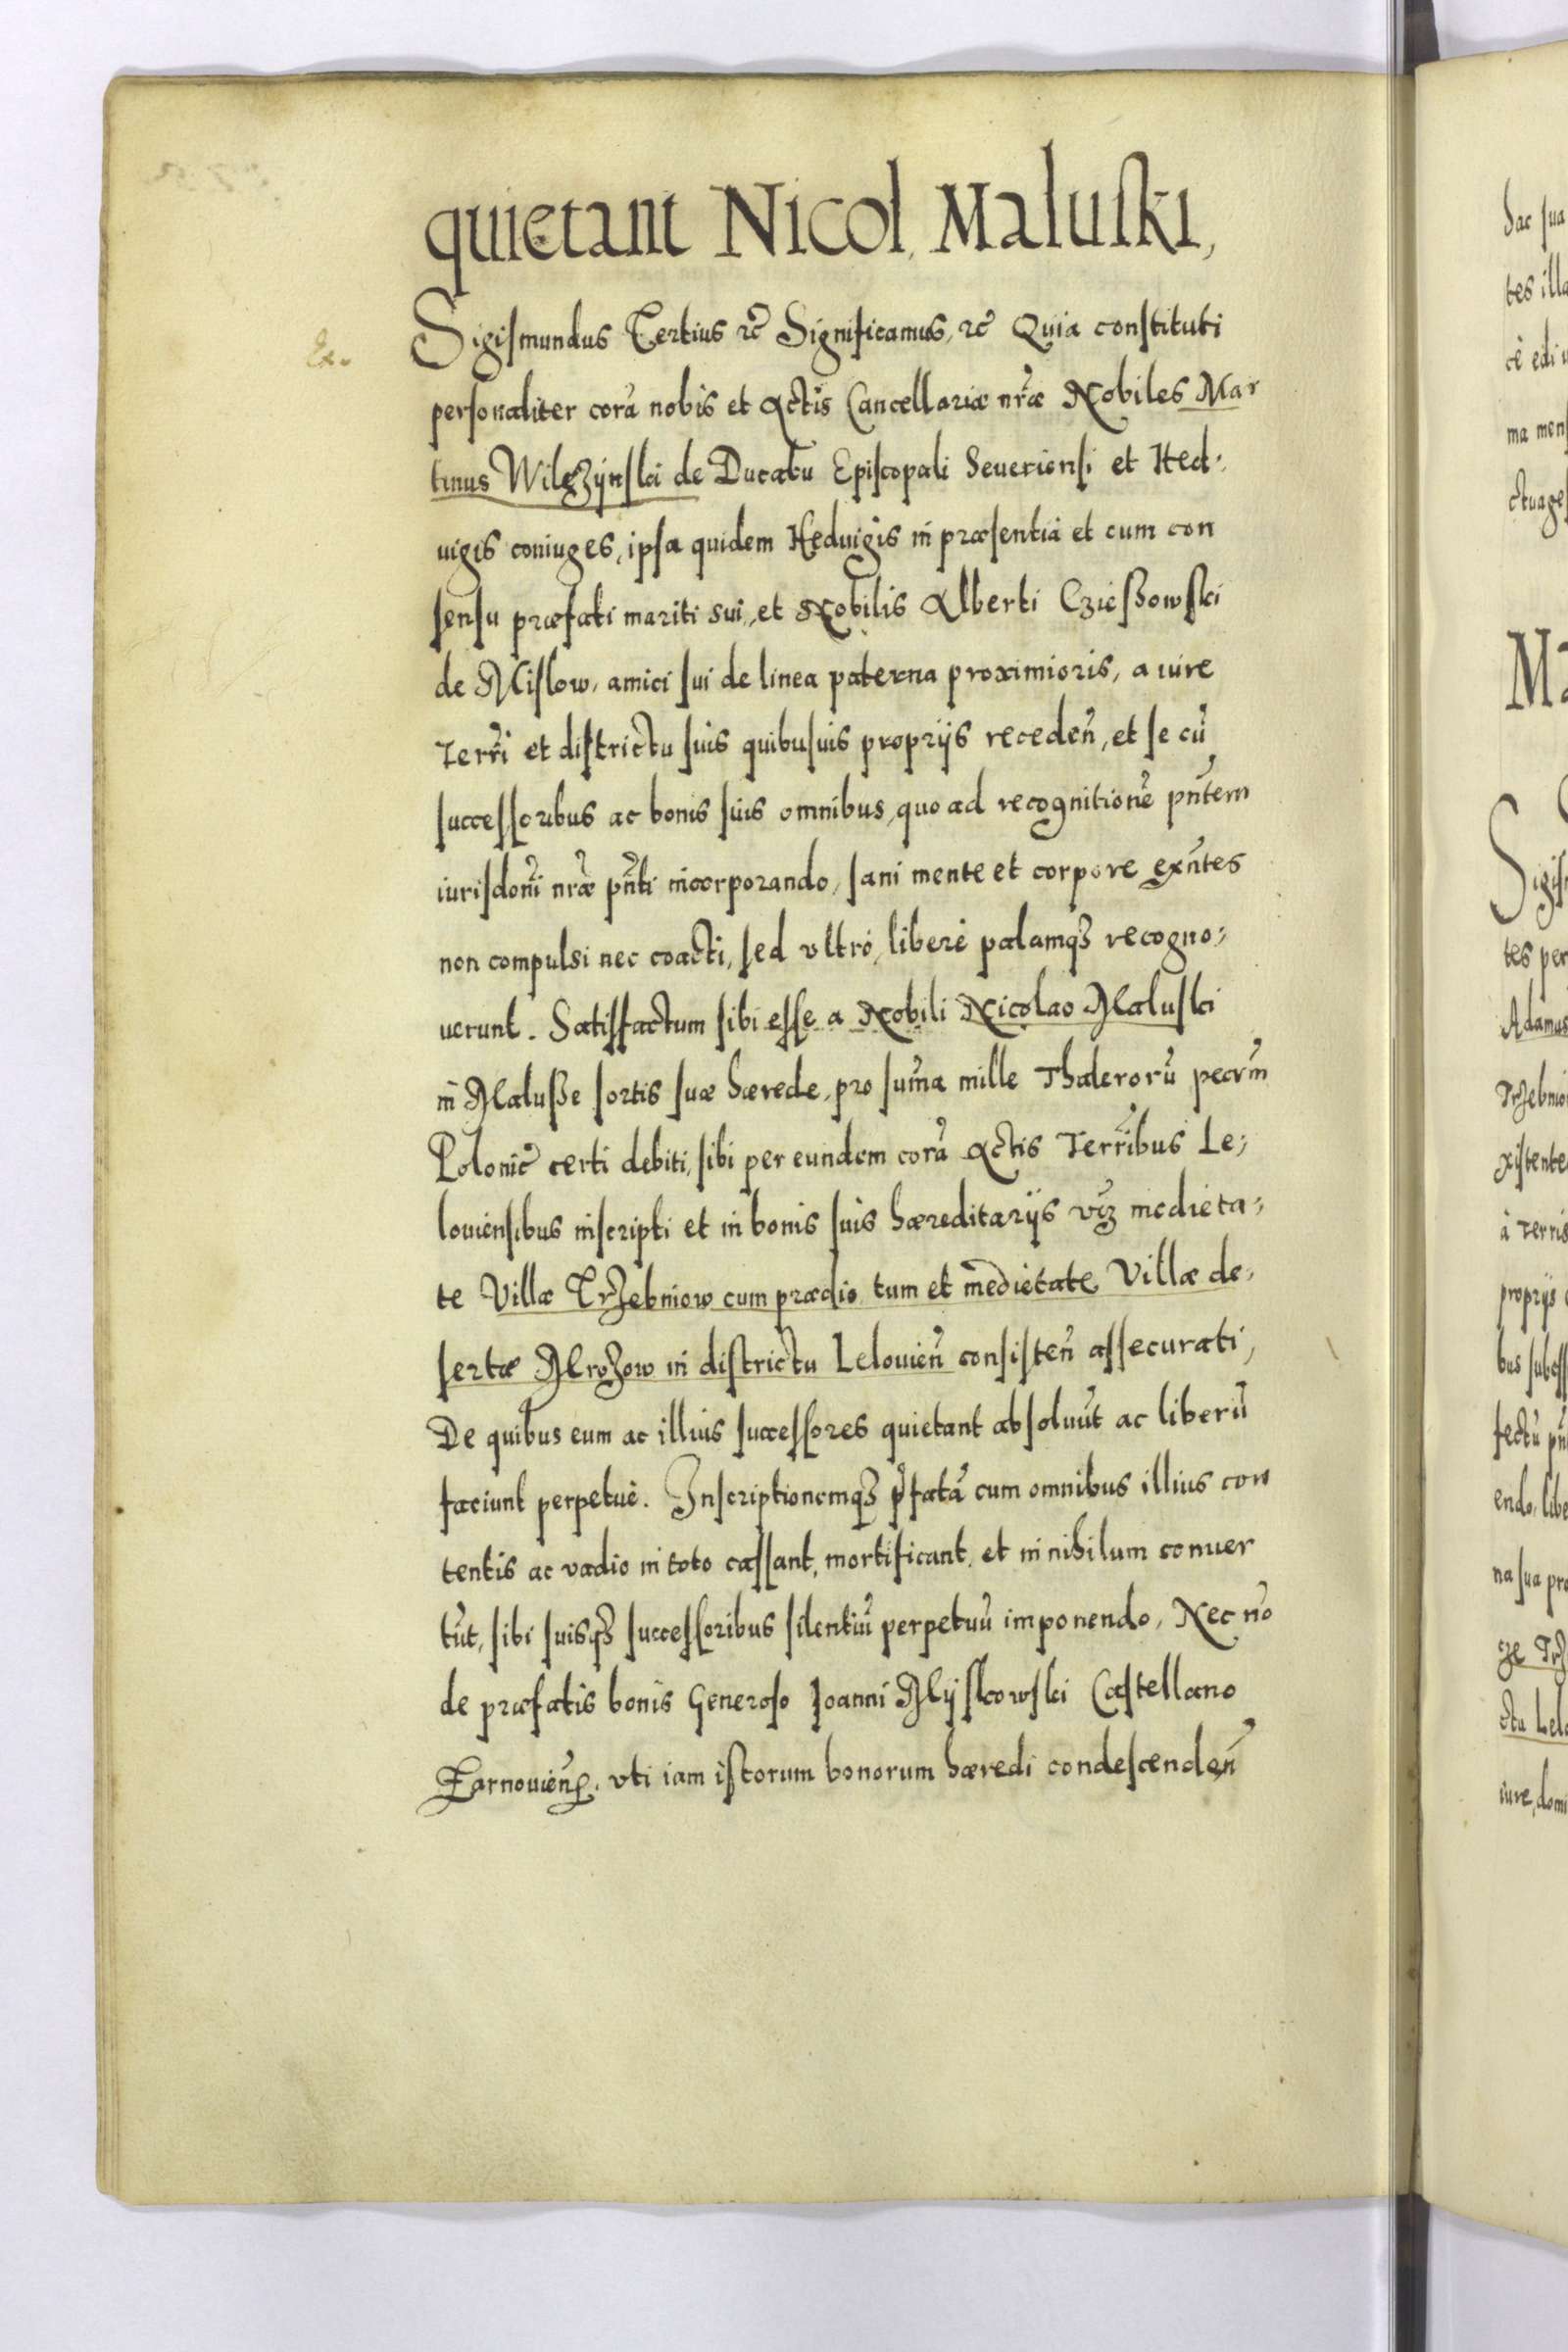 quietant Nicol, Maluski,
Ex.
Sigismundus Tertius rc̃ Significamus, rc̃ Quia constituti
personaliter corã nobis et Actis Cancellariæ nr̃æ Nobiles Mar
tinus Wilczÿnski de Ducatu Episcopali Seueriensi et Hed:
uigis coniuges, ipsa quidem Heduigis in præsentia et cum con
sensu præfati mariti sui, et Nobilis Alberti Czießowski
de Mislow, amici sui de linea paterna proximioris, a iure
Terrĩ et districtu suis quibusuis proprijs recedeñ, et se cũ
successoribus ac bonis suis omnibus, quo ad recognitionẽ pñtem
iurisdoñi nr̃æ pñti incorporando, sani mente et corpore exñtes
non compulsi nec coacti, sed vltrò, liberè palamqȝ recogno:
uerunt. Satisfactum sibi esse a Nobili Nicolao Maluski
in Maluße sortis suæ hærede, pro sum̃a mille Thalerorũ pecũm
Polonic̃ certi debiti, sibi per eundem corã Actis Terrĩbus Le:
louiensibus inscripti et in bonis suis hæreditarijs vĩȝ medieta:
te Villæ Trzebniow cum prædio tum et medietate Villæ de:
sertæ Mrozow in districtu Lelouieñ consisteñ assecurati,
De quibus eum ac illius successores quietant absoluũt ac liberũ
faciunt perpetuè. Inscriptionemqȝ p̃fatã cum omnibus illius con
tentis ac vadio in toto cassant, mortificant, et in nihilum conuer
tũt, sibi suisqȝ successoribus silentiũ perpetuũ imponendo, Nec nõ
de præfatis bonis Generoso Ioanni Mÿszkowski Castellano
Zarnouieñ, vti iam istorum bonorum hæredi condescendeñ